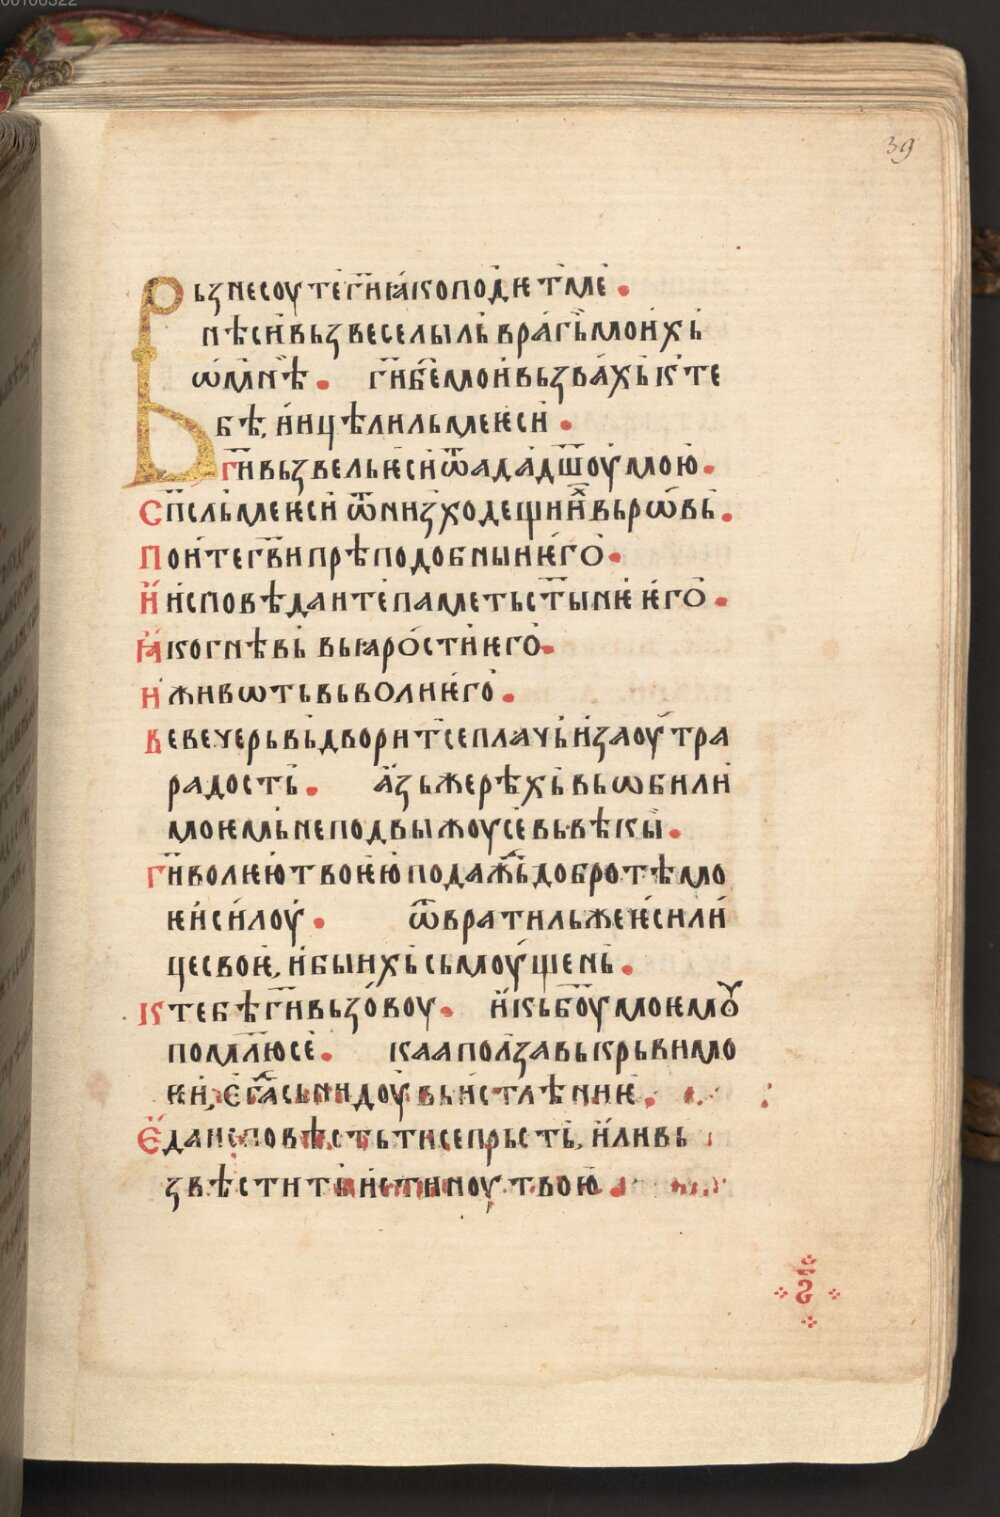 00106322
39
Вьзнесоу те г҃и ꙗко подѥт ме .
нѣси вьзвеселыль врагь моихь
ѡ мнѣ . г҃и б҃е мои вьзвахь к те
бѣ, и ицѣлиль ме ѥси .
г҃и вьзвель ѥси ѿ ада дш҃оу мою .
сп҃сль ме ѥси ѿ низходещиⷯ вь рѡвь .
поите г҃ви прѣподобныи ѥго .
и исповѣдаите паметь ст҃ынѥ ѥго .
ꙗко гнѣвь вь ꙗрости ѥго .
и живѡть вь воли ѥго .
вечерь вьдворит се плачь и заоутра
радость . азь же рѣхь вь ѡбили
моѥмь не подвыжоу се вь вѣкы .
г҃и волѥю твоѥю подажⷣь добротѣ мо
ѥи силоу . ѿвратиль же ѥси ли
це своѥ, и быихь сьмоущень .
к тебѣ г҃и вьзовоу . и кь б҃оу моѥмꙋ
помл҃ю се . каа полза вь крьви мо
ѥи, ѥгⷣа сьнидоу вь истлѣниѥ .
ѥда исповѣсть ти се прьсть, или вь
звѣстит истиноу твою .
ѕ